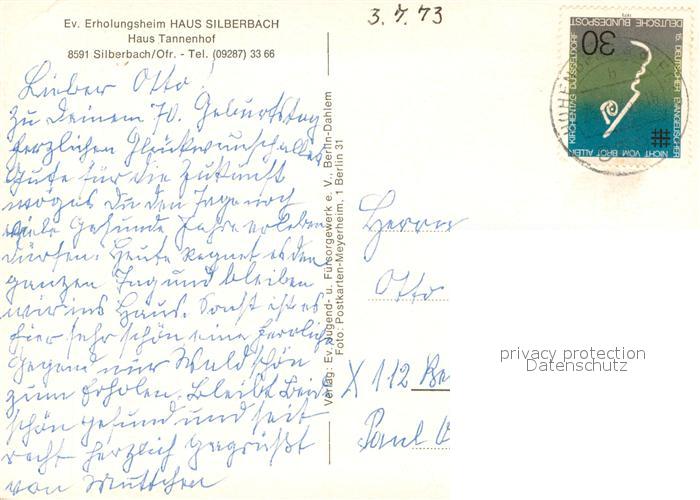 Ev. Erholungsheim HAUS SILBERBACH
Haus Tannenhof
8591 Silberbach/Ofr. - Tel. (09287) 33 66
3.7.73
Lieber Otto!
Zu Deinem 70. Geburtstag
herzlichen Glückwunsch alles
Gute für die Zukunft
mögest Du den Tag noch
viele Gesunde Jahre erleben
dürfen. Heute Regnet es den
ganzen Tag und bleiben
wir ins Haus. Sonst ist es
hier sehr schön eine herrliche
Gegend nur Wald schön
zum Erholen. Bleibt beide
schön gesund und seit
recht herzlich gegrüßt
von Muttchen
Verlag: Ev. Jugend- u. Fürsorgewerk e. V., Berlin-Dahlem
Foto: Postkarten-Meyerheim, 1 Berlin 31
30
DEUTSCHE BUNDESPOST
15. DEUTSCHER EVANGELISCHER
KIRCHENTAG DÜSSELDORF
NICHT VOM BROT ALLEIN
Herrn
Otto
X 112 Be
Paul
privacy protection
Datenschutz